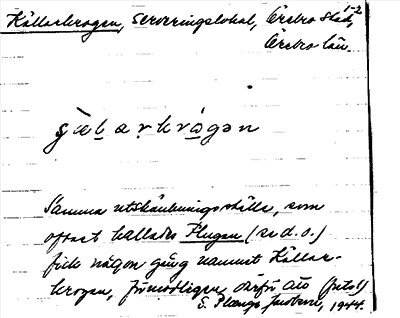 1-2
Källarkrogen, serveringslokal, Örebro stad,
Örebro län
Samma utskänkningsställe, som
oftast kallades Flugan (se d.o.)
fick någon gång namnet Källar-
krogen, förmodligen därför att
S. 1944.